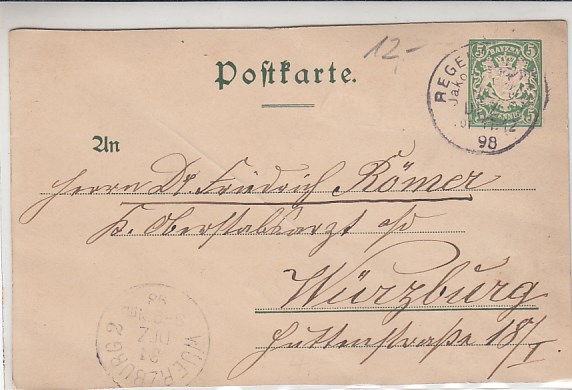 12,-
Postkarte.
5 BAYERN 5
5 PFENNIG 5
REGE
Jako
98
An
Herrn Dr. Friedrich Römer
K. Oberstabsarzt a/D
Würzburg
Huttenstraße 18/I
WUERZBURG 2
98